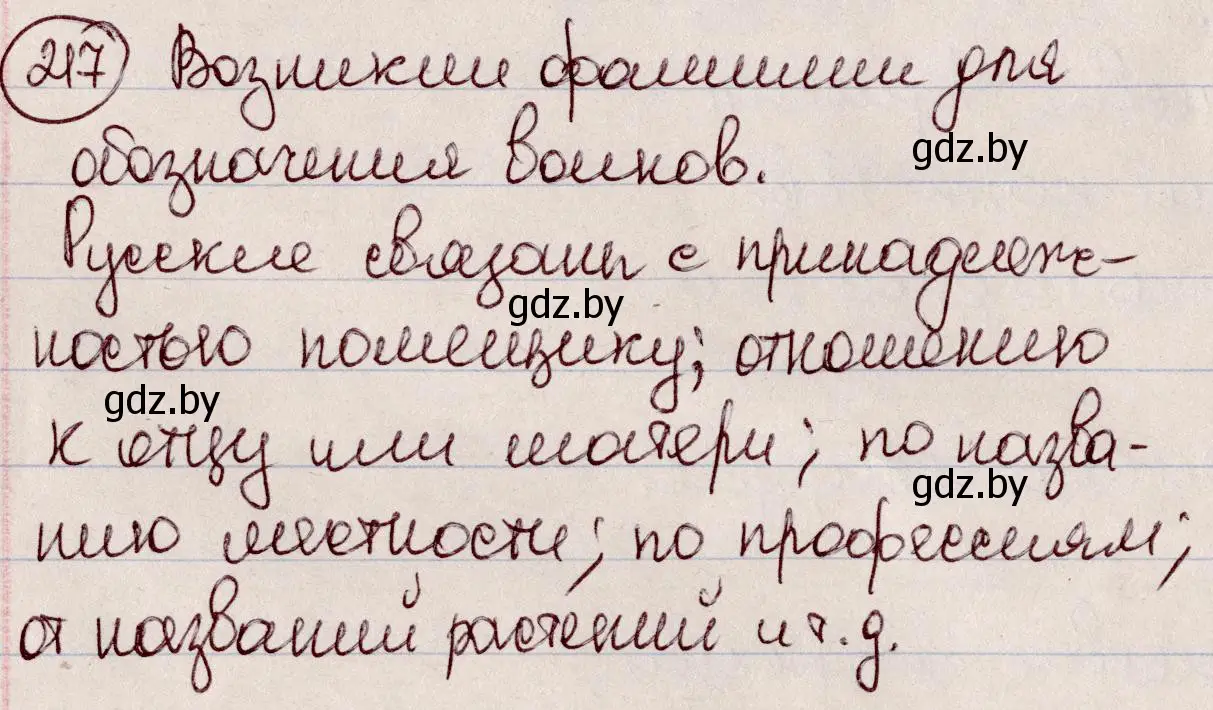 217 Возникли фамилии для
обозначения воинов.
gdz.by
Русские связаны с принадлеж-
gdz.by
ностью помещику; отношению
gdz.by
к отцу или матери; по назва-
gdz.by
нию местности; по профессиям;
от названий растений и т.д.